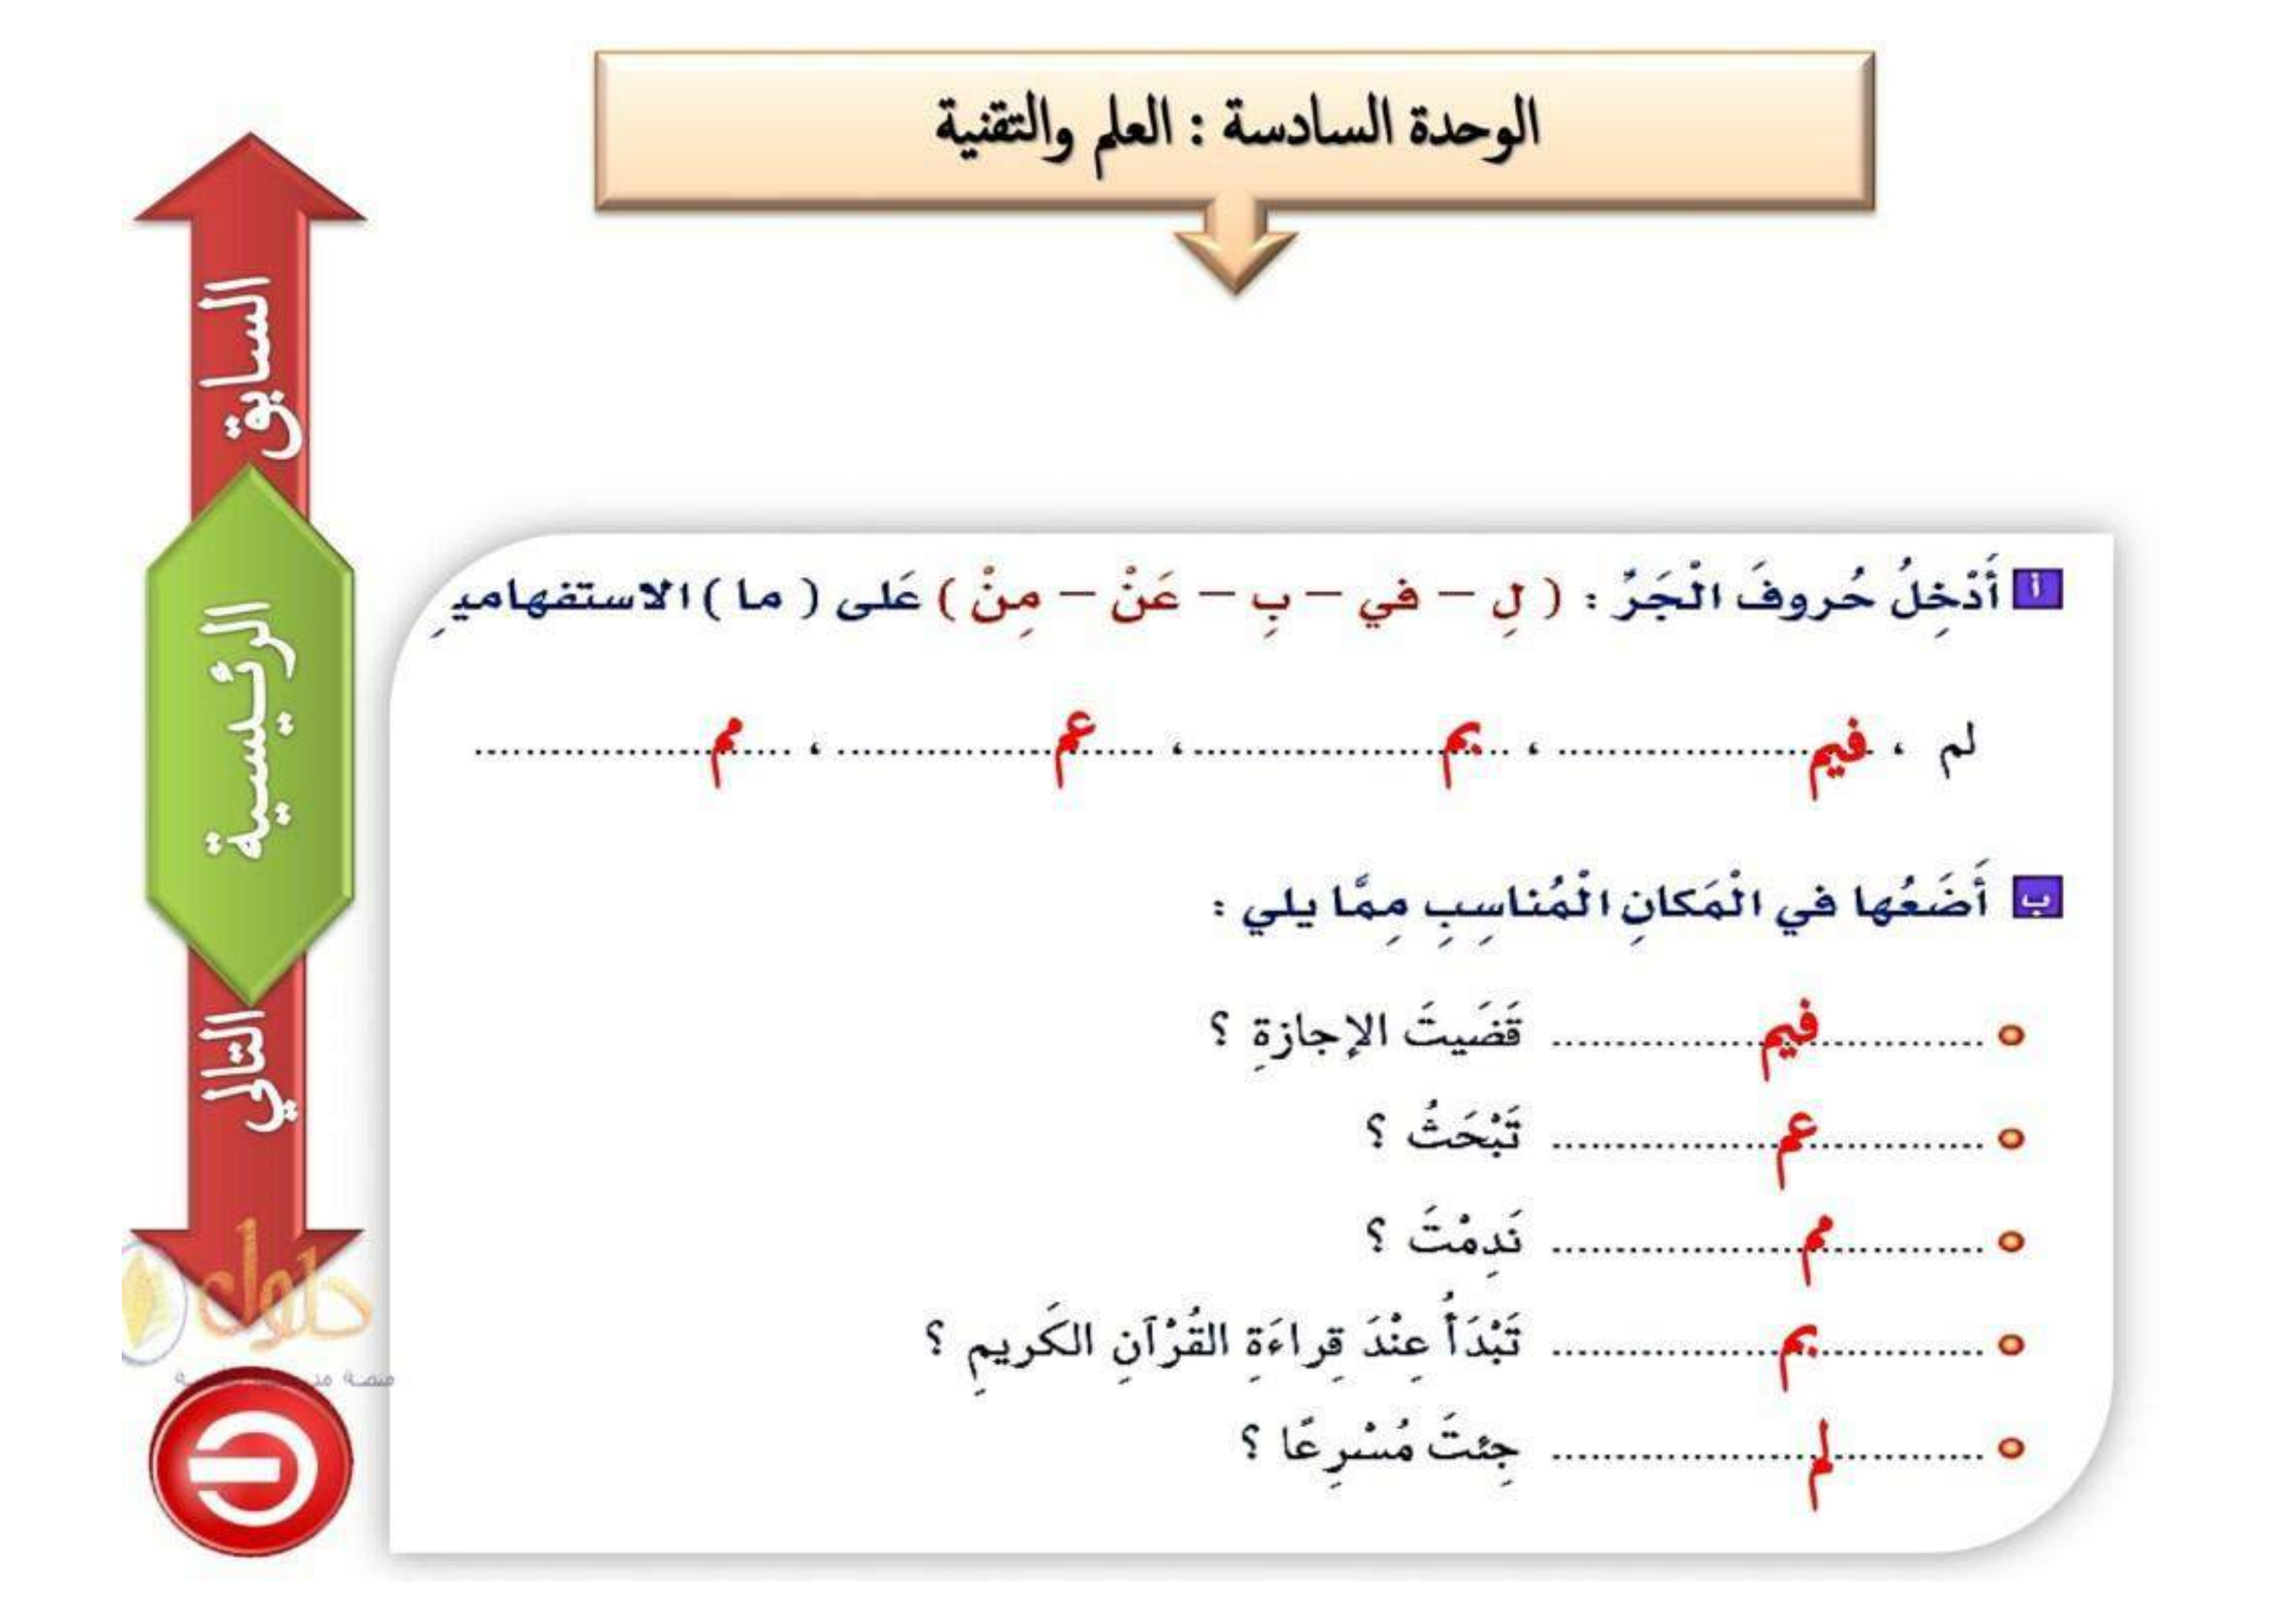 الوحدة السادسة : العلم والتقنية
السابق
الرئيسية
التالي
أ أَدْخِلُ حُروفَ الْجَرِّ : ( لِ – في – بِ – عَنْ – مِنْ ) عَلى ( ما ) الاستفهامية
لم ، فيم ، بم ، عم ، مم
ب أَضَعُها في الْمَكانِ الْمُناسِبِ مِمَّا يلي :
فيم قَضَيتَ الإجازةِ ؟
عم تَبْحَثُ ؟
مم نَدِمْتَ ؟
بم تَبْدَأُ عِنْدَ قِراءَةِ القُرْآنِ الكَريمِ ؟
لم جِئتَ مُسْرِعًا ؟
حلول